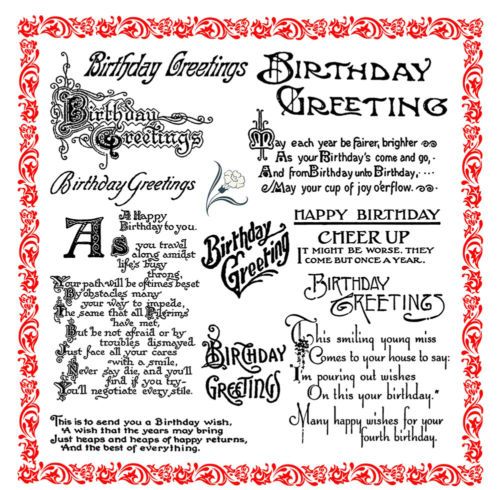 Birthday Greetings
BIRTHDAY
GREETING
Birthday
Greetings
May each year be fairer, brighter
As your Birthday's come and go,
And from Birthday unto Birthday,
May your cup of joy o'erflow.
Birthday Greetings
A Happy
Birthday to you.
As you travel
along amidst
life's busy
throng,
Your path will be oftimes beset
By obstacles many
your way to impede,
The same that all Pilgrims
have met,
But be not afraid or by
troubles dismayed
Just face all your cares
with a smile,
Never say die, and you'll
find if you try—
You'll negotiate every stile.
Birthday
Greeting
HAPPY BIRTHDAY
CHEER UP
IT MIGHT BE WORSE. THEY
COME BUT ONCE A YEAR.
BIRTHDAY
GREETINGS
BIRTHDAY
GREETINGS
This smiling young miss
Comes to your house to say:
"I'm pouring out wishes
On this your birthday."
Many happy wishes for your
fourth birthday.
This is to send you a Birthday wish,
A wish that the years may bring
Just heaps and heaps of happy returns,
And the best of everything.